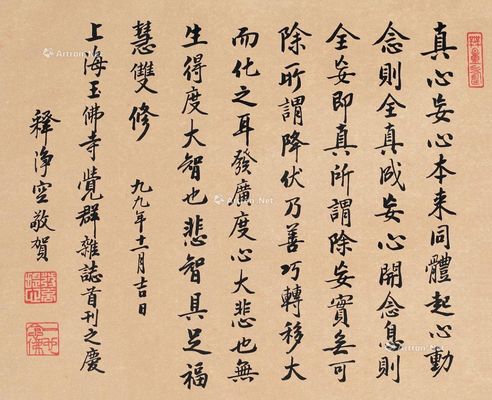 真心妄心本来同體起心動
念則全真成妄心開念息則
全妄即真所謂除妄實無可
除所謂降伏乃善巧轉移大
而化之耳發廣度心大悲也無
生得度大智也悲智具足福
慧雙修
九九年十一月吉日
上海玉佛寺覺群雜誌首刊之慶
釋淨空敬賀
Artron.Net
Artron.Net
Artron.Net
Artron.Net
Artron.Net